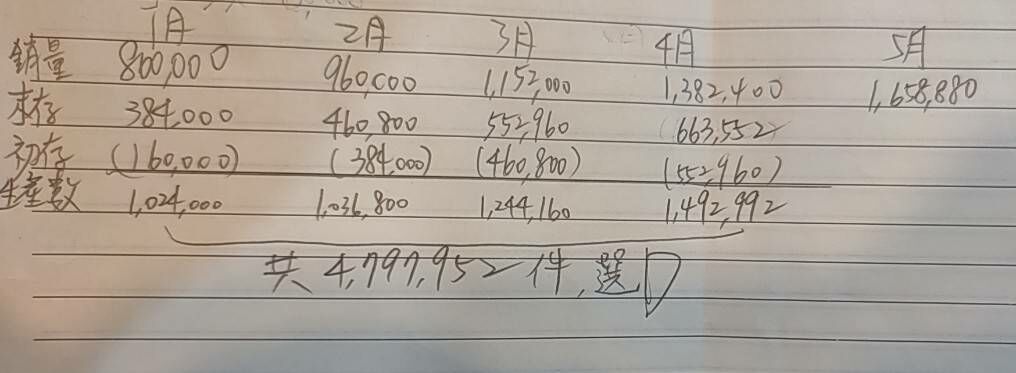 1月 2月 3月 4月 5月
銷量 800,000 960,000 1,152,000 1,382,400 1,658,880
末存 384,000 460,800 552,960 663,552
初存 (160,000) (384,000) (460,800) (552,960)
生產數 1,024,000 1,036,800 1,244,160 1,492,992
共 4,797,952件,選D